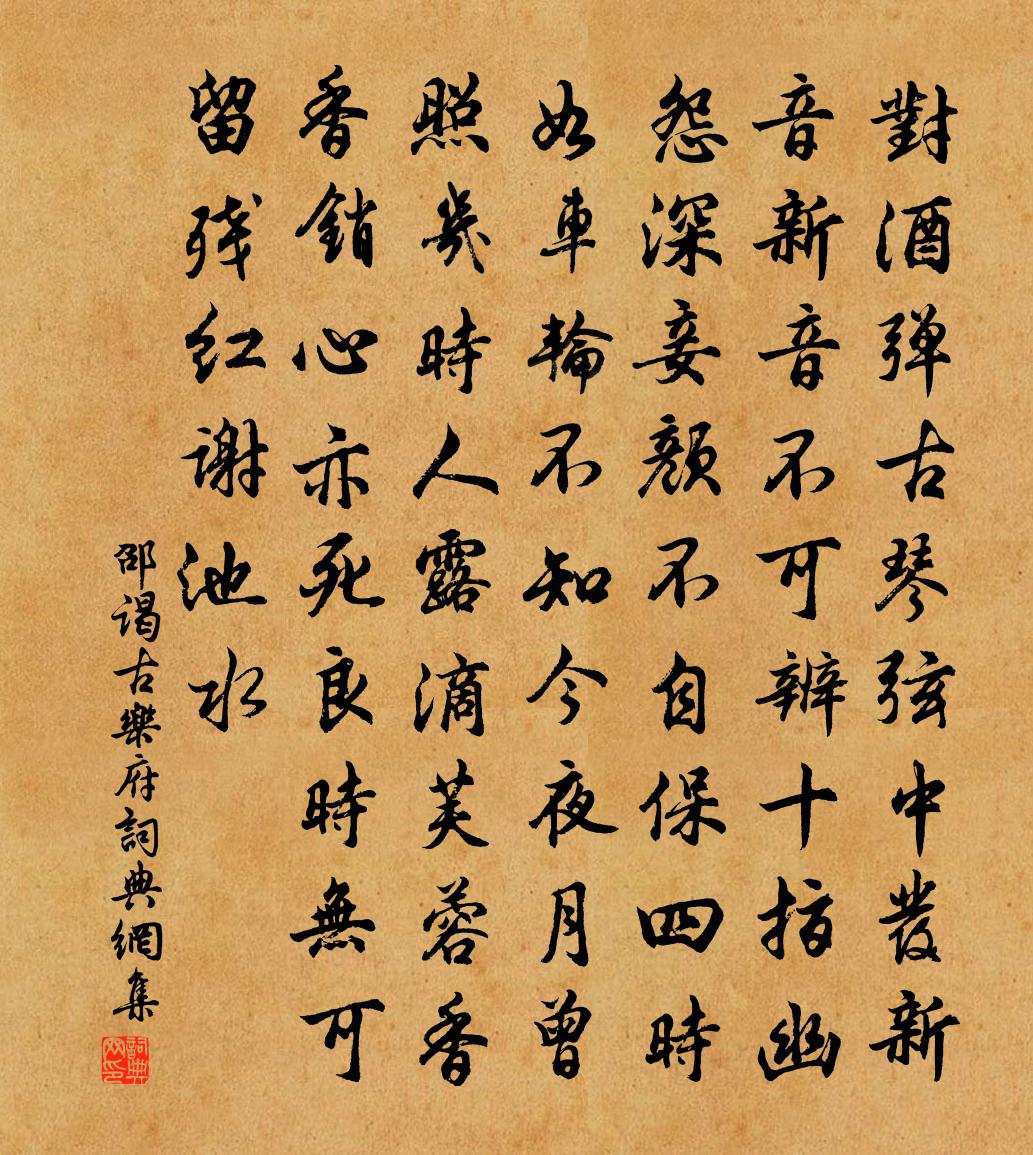 對酒彈古琴弦中發新
音新音不可辨十指幽
怨深妾顏不自保四時
如車輪不知今夜月曾
照幾時人露滴芙蓉香
香銷心亦死良時無可
留殘紅謝池水
邵謁古樂府詞典網集
詞典网印